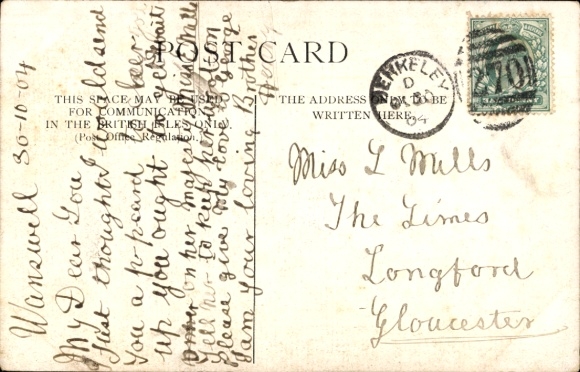 POST CARD
THIS SPACE MAY BE USED
FOR COMMUNICATION
IN THE BRITISH ISLES ONLY.
(Post Office Regulation.)
THE ADDRESS ONLY TO BE
WRITTEN HERE.
BERKELEY
D
OC 30
04
70
Wanswell 30-10-04
My Dear Lou
Just thought I would send
you a p. poard to keep
up you ought to wait
on her majesty Miss Mills
Tell her to keep her
Please give My love to George
I am your loving Brother
Miss L Mills
The Limes
Longford
Gloucester